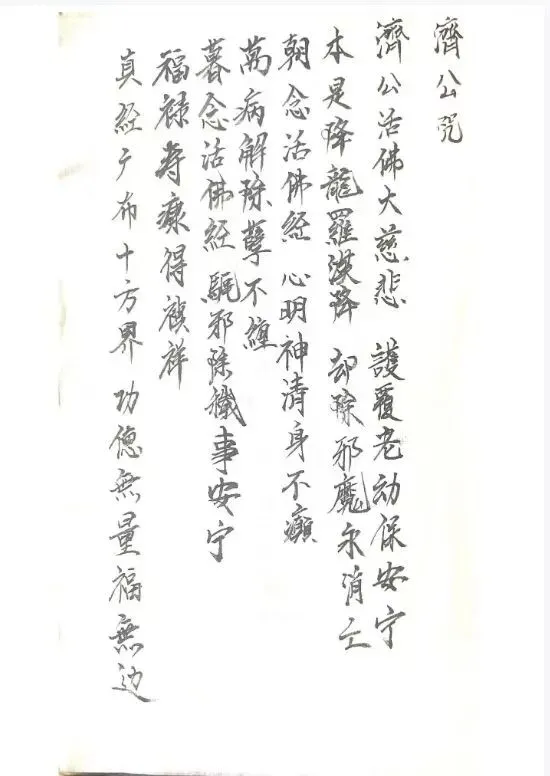 濟公咒
濟公活佛大慈悲 護覆老幼保安宁
本是降龍羅漢降 却除邪魔永消亡
朝念活佛經 心明神清身不癩
萬病解除孽不纏
暮念活佛經 驅邪除穢事安宁
福禄寿康得禎祥
真經广布十方界功德無量福無边